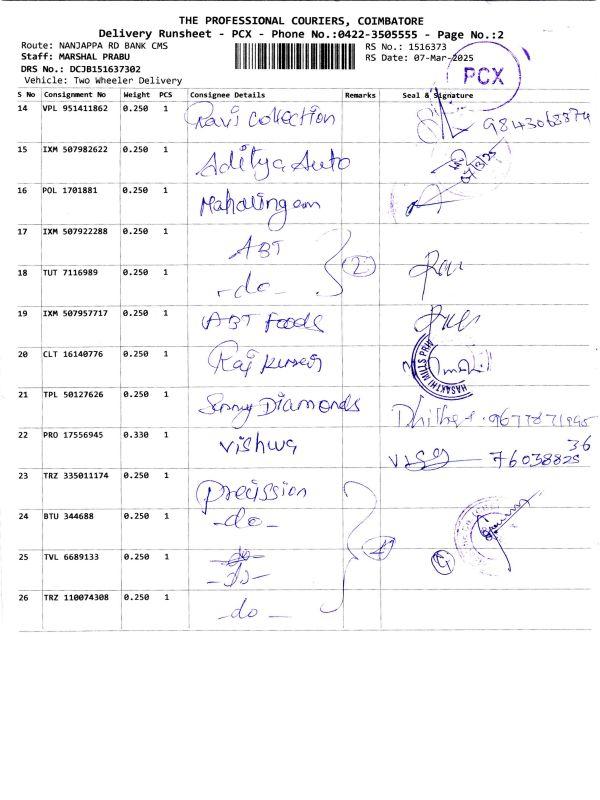 THE PROFESSIONAL COURIERS, COIMBATORE
Delivery Runsheet - PCX - Phone No.:0422-3505555 - Page No.:2
Route: NANJAPPA RD BANK CMS
Staff: MARSHAL PRABU
DRS No.: DCJB151637302
Vehicle: Two Wheeler Delivery
RS No.: 1516373
RS Date: 07-Mar-2025
PCX
S No Consignment No Weight PCS Consignee Details Remarks Seal & Signature
14 VPL 951411862 0.250 1 Ravi Collection 9843068874
15 IXM 507982622 0.250 1 Aditya Auto 07/3/25
16 POL 1701881 0.250 1 Mahalingam
17 IXM 507922288 0.250 1 ABT
2
18 TUT 7116989 0.250 1 -do-
19 IXM 507957717 0.250 1 ABT Foods
20 CLT 16140776 0.250 1
21 TPL 50127626 0.250 1 Sunny Diamonds
22 PRO 17556945 0.330 1 Vishwa
23 TRZ 335011174 0.250 1 Precission
24 BTU 344688 0.250 1 -do-
25 TVL 6689133 0.250 1 -do-
4
26 TRZ 110074308 0.250 1 -do-